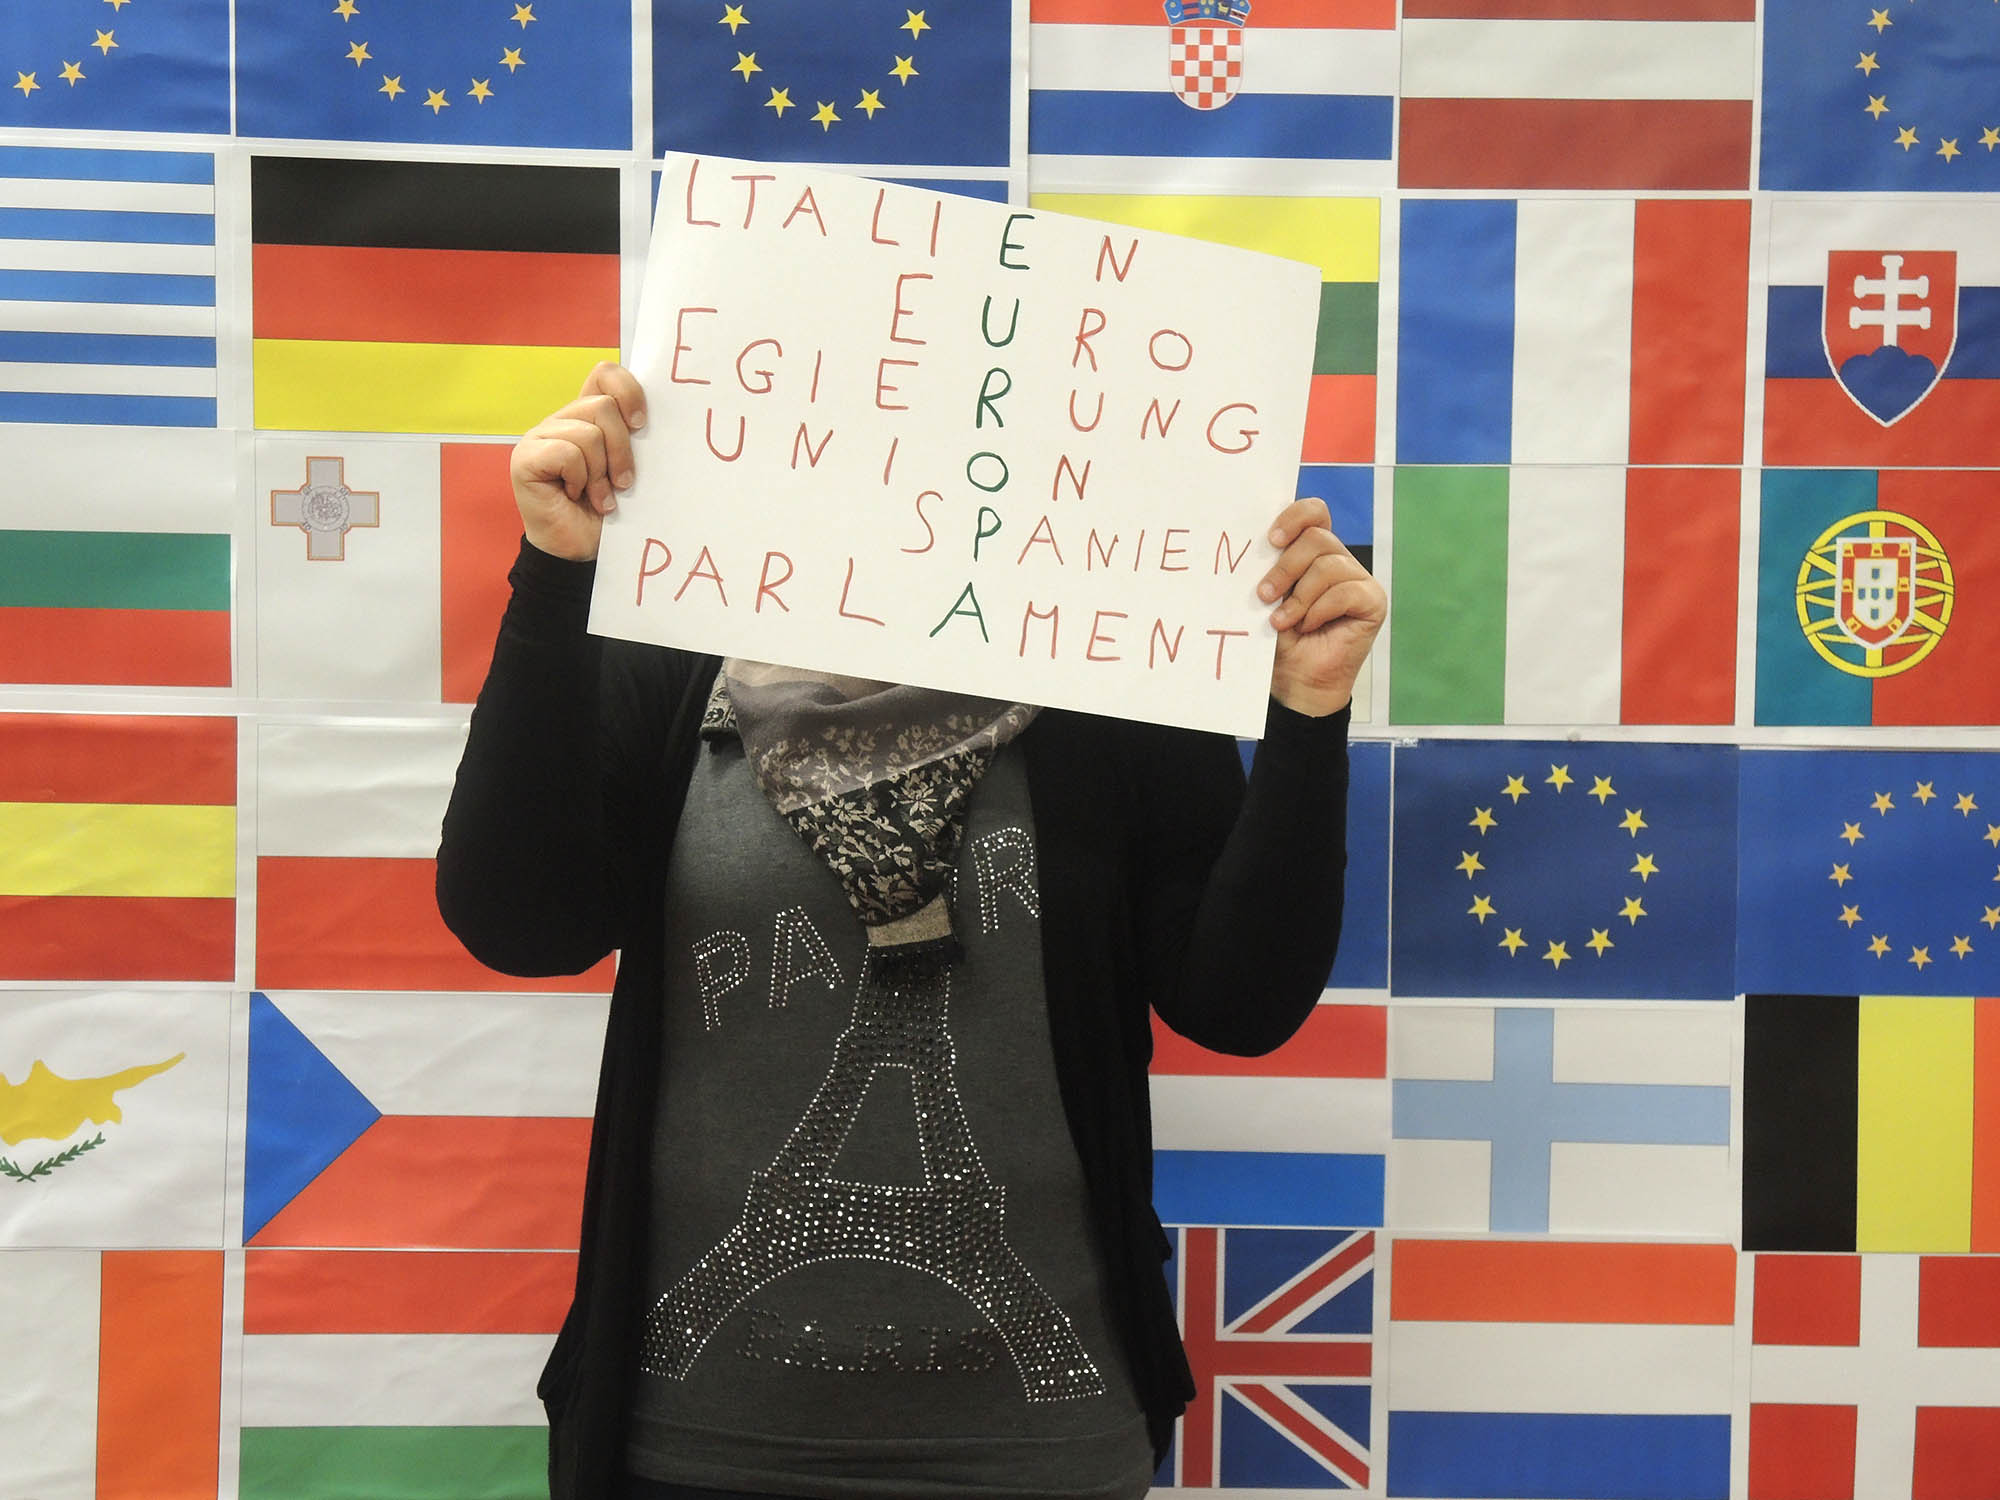 LTALIEN
EURO
EGIERUNG
UNION
SPANIEN
PARLAMENT
PAR
PARIS